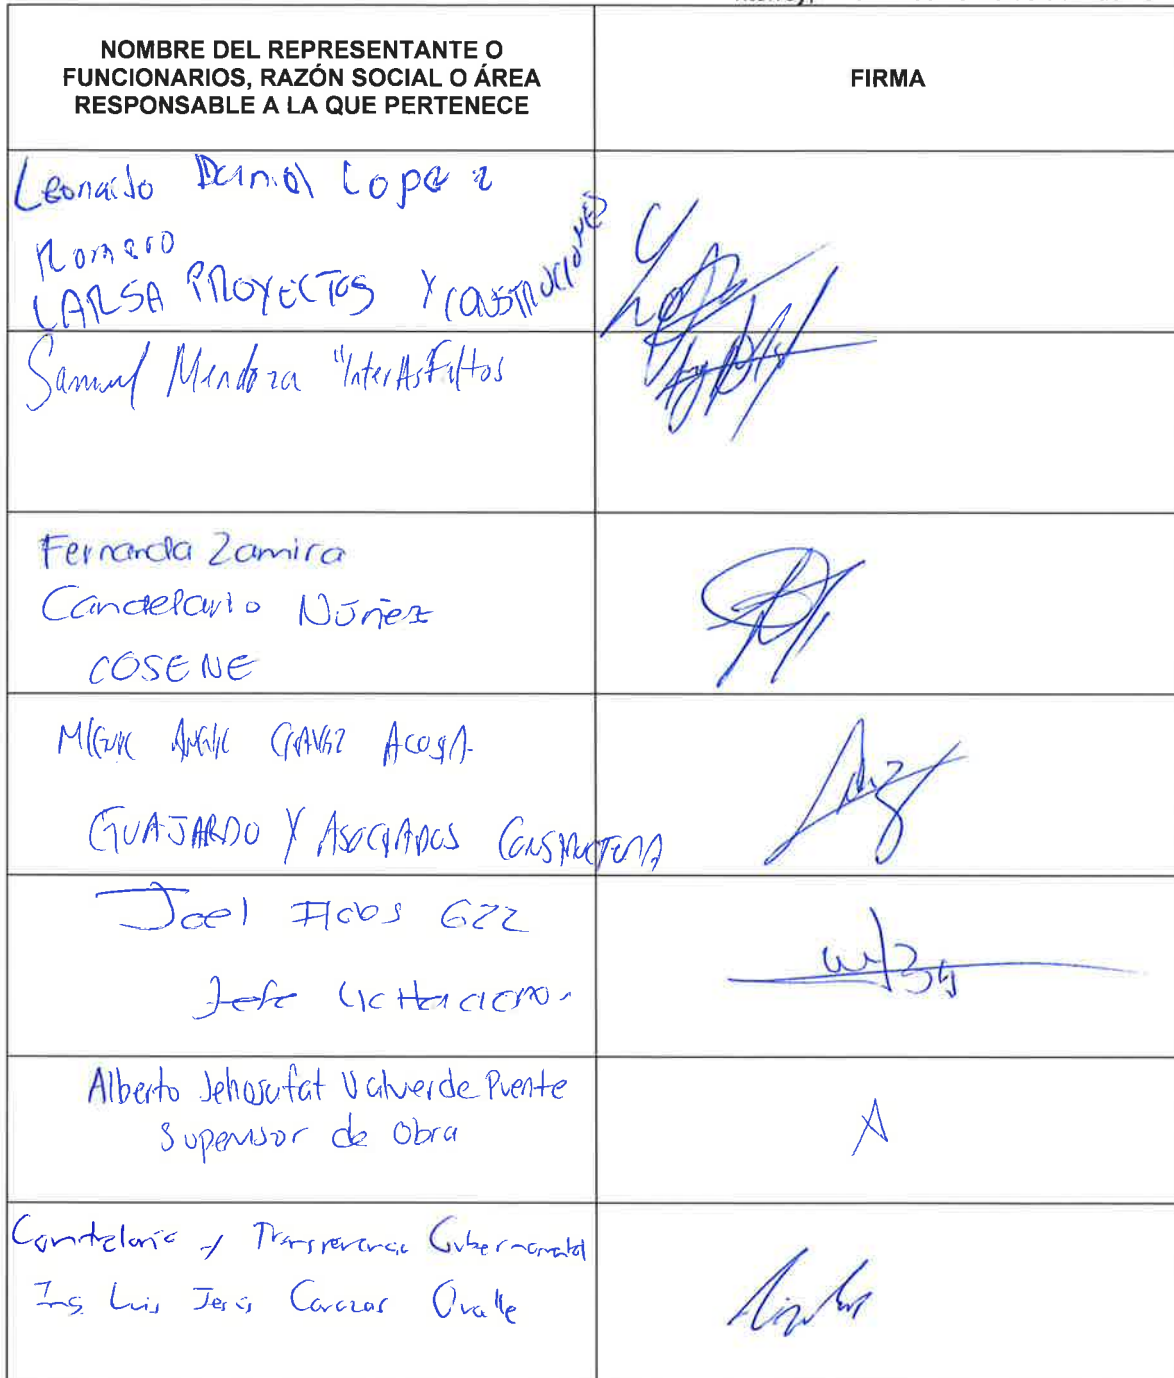 NOMBRE DEL REPRESENTANTE O
FUNCIONARIOS, RAZÓN SOCIAL O ÁREA
RESPONSABLE A LA QUE PERTENECE
FIRMA
Leonardo Daniel Lopez
Romero
LARSA PROYECTOS Y CONSTRUCIONES
Samuel Mendoza "InterAsfaltos
Fernanda Zamira
Candelario Núñez
COSENE
MIGUEL ANGEL CHAVEZ ACOSTA
GUAJARDO Y ASOCIADOS CONSTRUCTORA
Joel
Jefe Licitacion
Alberto Jehosafat Valverde Puente
Supervisor de Obra
y Transparencia Gubernamental
Ing Luis Jesús Ovalle